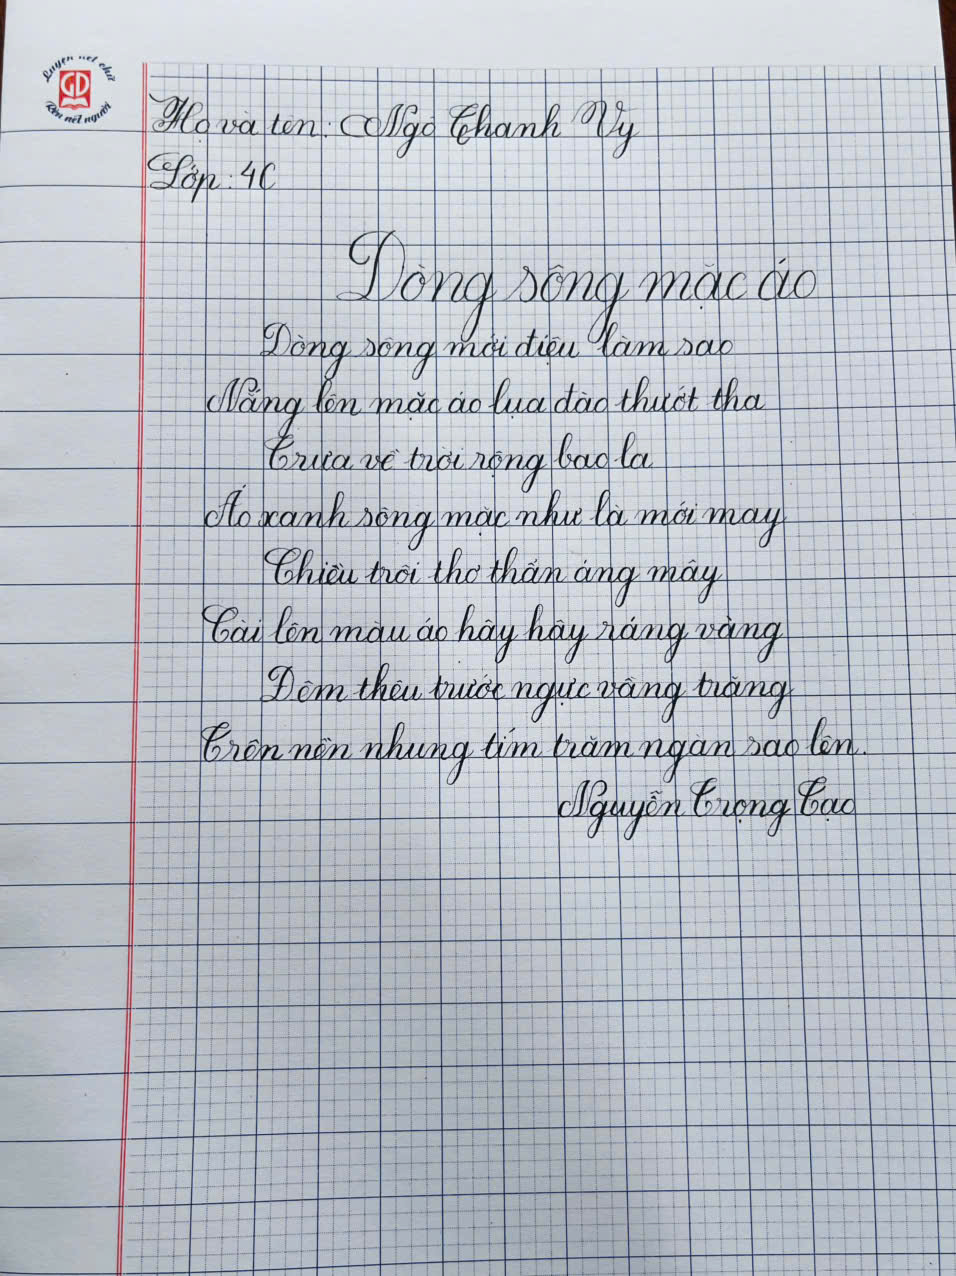 Luyện nét chữ
GD
Rèn nết người
Họ và tên: Ngô Thanh Vy
Lớp: 4C
Dòng sông mặc áo
Dòng sông mới điệu làm sao
Nắng lên mặc áo lụa đào thướt tha
Trưa về trời rộng bao la
Áo xanh sông mặc như là mới may
Chiều trôi thơ thẩn áng mây
Cài lên màu áo hây hây ráng vàng
Đêm thêu trước ngực vầng trăng
Trên nền nhung tím trăm ngàn sao lên.
Nguyễn Trọng Tạo